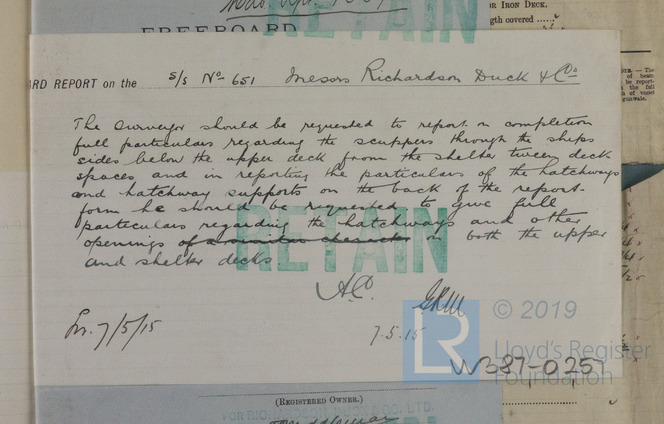 FREEBOARD
or Iron Deck.
gth covered
RETAIN
ARD REPORT on the s/s No 651 Messrs Richardson Duck & Co's
The Surveyor should be requested to report on completion
full particulars regarding the scuppers through the ships
sides below the upper deck from the shelter tween deck
spaces and in reporting the particulars of the hatchways
and hatchway supports on the back of the report
form he should be requested to give full
particulars regarding the hatchways and other
openings of a similar character on both the upper
and shelter decks
RETAIN
7/5/15
7.5.15
LR
© 2019
Lloyd's Register
Foundation
W387-0257
(Registered Owner.)